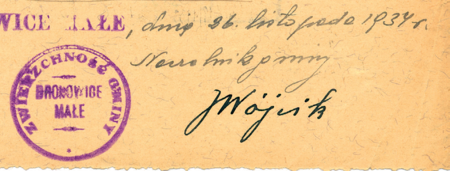 WICE MAŁE, dnia 26. listopada 1934 r.
Naczelnik gminy
ZWIERZCHNOŚĆ GMINY
BRONOWICE
MAŁE
JWójcik